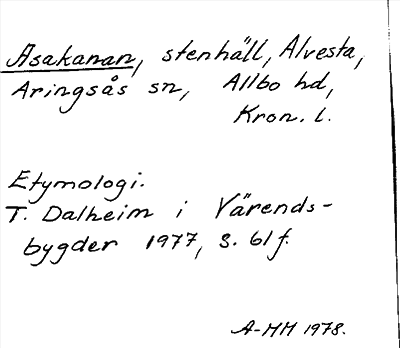 Asakanan, stenhäll, Alvesta,
Aringsås sn, Allbo hd,
Kron. l.
Etymologi.
T. Dalheim i Värends-
bygder 1977, s. 61 f.
A-MH 1978.